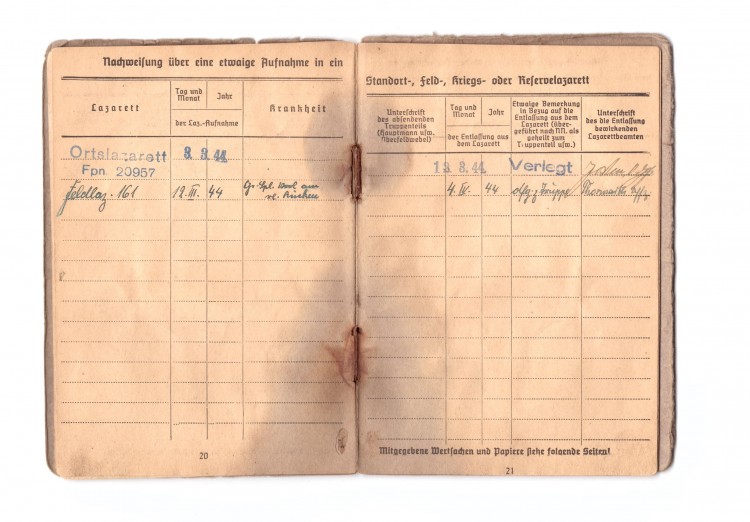 Nachweisung über eine etwaige Aufnahme in ein
Lazarett
Tag und
Monat
Jahr
der Laz.-Aufnahme
Krankheit
Ortslazarett
Fpn. 20957
8 8.44
Feldlaz. 161
12. III. 44
am
Rücken
20
Standort-, Feld-, Kriegs- oder Reservelazarett
Unterschrift
des absendenden
Truppenteils
(Hauptmann usw.
Oberfeldwebel)
Tag und
Monat
Jahr
der Entlassung aus
dem Lazarett
Etwaige Bemerkung
in Bezug auf die
Entlassung aus dem
Lazarett (über-
geführt nach NN. als
geheilt zum
Truppenteil usw.)
Unterschrift
des die Entlassung
bewirkenden
Lazarettbeamten
8.44
Verlegt
4. IV. 44
dfg. z. Truppe
Mitgegebene Wertsachen und Papiere siehe folgende Seiten!
21